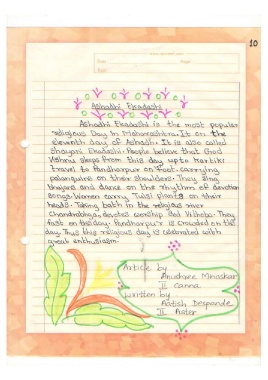 10
Ashadhi Ekadashi
Ashadhi Ekadashi is the most popular
religious Day in Maharashtra. It on the
eleventh day of Ashadh. It is also called
Shayani Ekadashi. People believe that God
Vishnu sleeps from this day upto Kartiki
travel to Pandharpur on foot. carrying
palanquins on their shoulders. They sing
bhajans and dance on the rhythm of devotion
songs. Women carry Tulsi plants on their
heads. Taking bath in the religious river
Chandrabhaga, devotes worship God Vithoba. They
fast on this day. Pandharpur is crowded on this
day. Thus this religious day is celebrated with
great enthusiasm.
Article by
Anushree Mhaskar
II Canna
Written by
Despande
II Aster